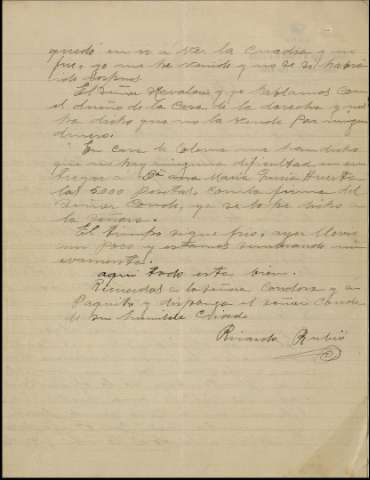 quedó en ir a ver la Cuadra y no
fue, yo me he venido y no se si habrá
ido
El Señor Nevalous y yo hablamos con
el dueño de la Casa de la derecha y nos
ha dicho que no la vende por ningun
dinero.
En casa de Coloma me han dicho
que no hay ninguna dificultad en en
tregar a Dª Ana María
las 5000 pesetas, con la firma del
Señor Conde, ya se lo he dicho
a la Señora.
El tiempo sigue frio, ayer llovio
un poco y estamos sembrando nu
evamente.
aqui todo esta bien.
Recuerdos a la Señora Condesa y a
Paquito y disponga el señor Conde
de su humilde Criado
Ricardo Rubio